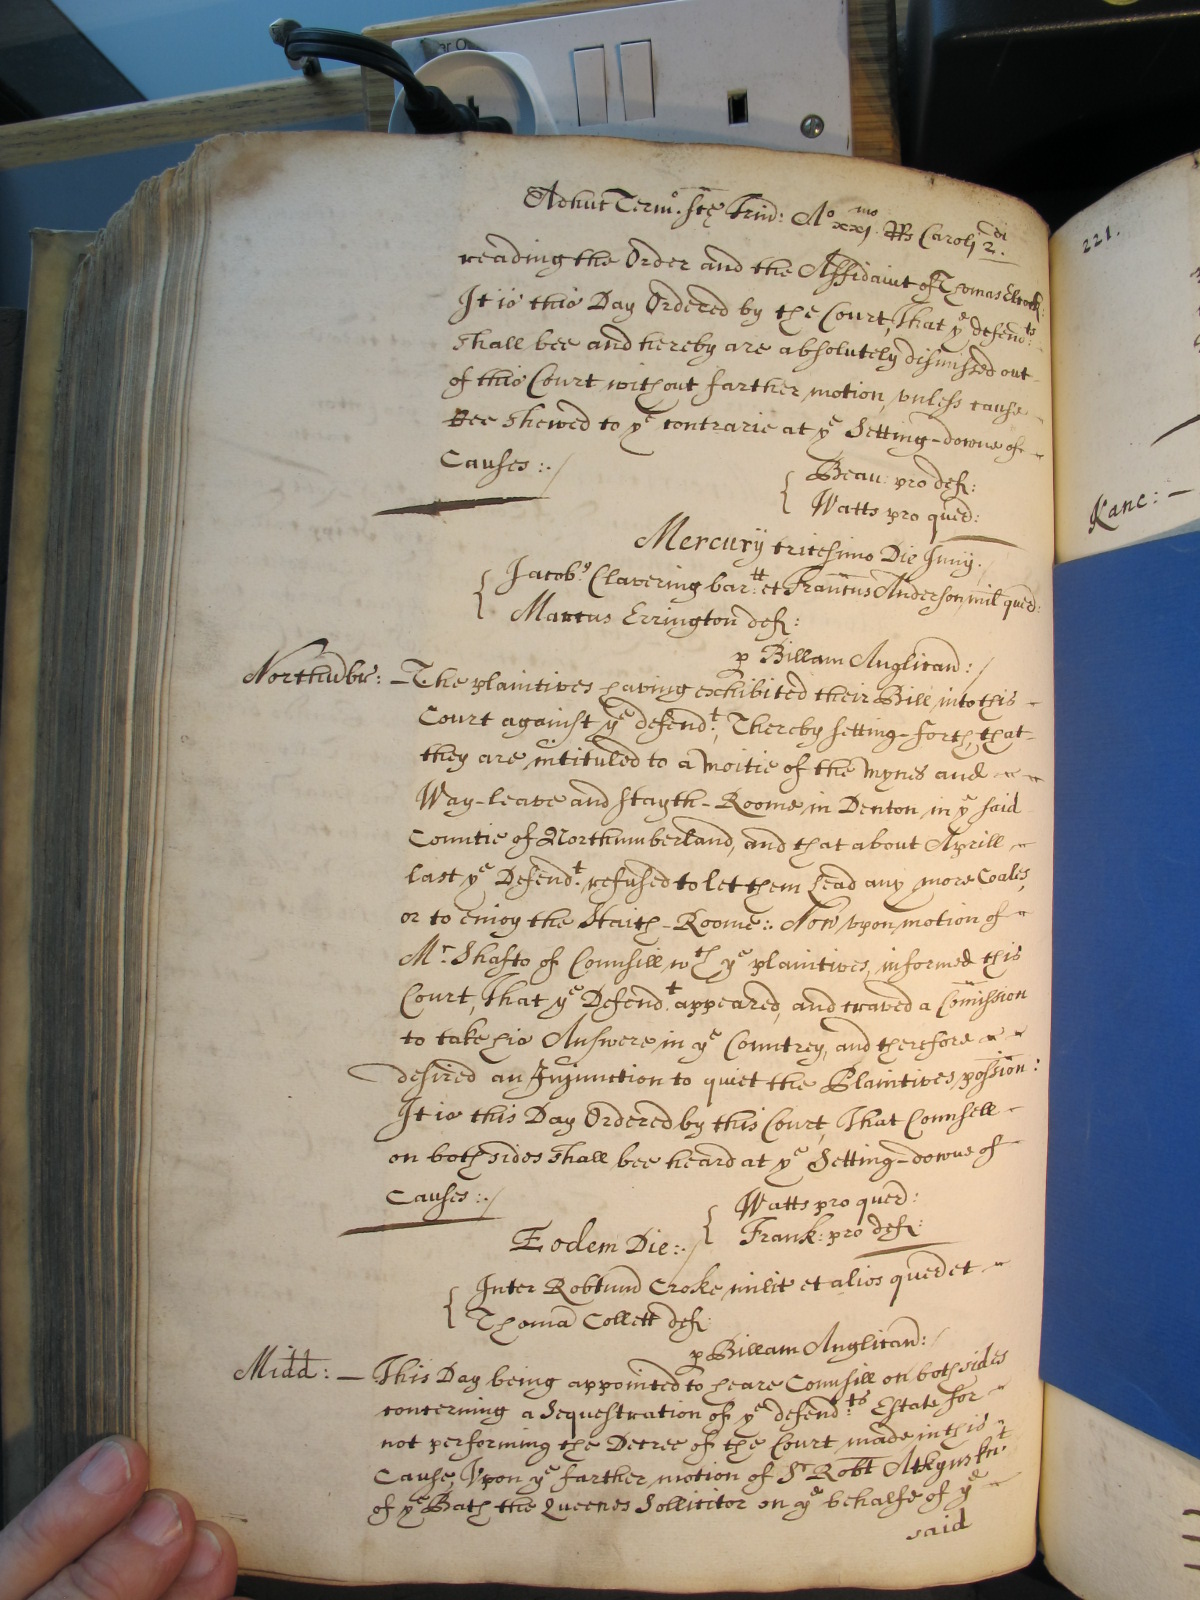 Adhuc Term.o Sce Trin: Ao xxjmo. RRs Caroli 2di.
reading the Order and the Affidavit of Thomas
It is this Day Ordered by the Court, That ye defendts:
shall bee and hereby are absolutely dismissed out
of this Court without farther motion, vnless cause
Bee shewed to ye contrarie at ye Setting-downe of
Causes:./
Beau: pro def:
Watts pro quer:
Mercurij tricesimo Die Junij.
Jacob.s Clavering bar:tt et Francus Anderson mil quer:
Marcus Errington def:
p Billam Anglican:/
Northubr: - The plaintives having exhibited their Bill into this
Court against ye defend:t, Thereby setting-forth, that
they are intituled to a moitie of the Mynes and
Way-leave and stayth-Roome in Denton in ye said
Countie of Northumberland, and that about Aprill
last ye Defend:t refused to let them Lead any more Coales,
or to enioy the Staith-Roome:. Now vpon motion of
Mr. Shafto of Counsill wth ye plaintives, informed this
Court, That ye Defend.t appeared, and craved a Comission
to take his Answere in ye Countrey, and therefore
desired an Injunction to quiet the Plaintives possion:
It is this Day Ordered by this Court, That Counsell
on both sides shall bee heard at ye Setting-downe of
Causes:./
Watts pro quer:
Frank: pro def:
Eodem Die:./
Inter Robtum Croke milit et alios quer et
Thoma Collett def:
p Billam Anglican:/
Midd: - This Day being appointed to heare Counsill on both sides
concerning a Sequestration of ye defend:ts Estate for
not performing the Decree of the Court made in this
Cause, Vpon ye farther motion of Sr Robt Atkyns knt
of ye Bath the Queenes Sollicitor on ye behalfe of ye
said
221.
Kanc: -